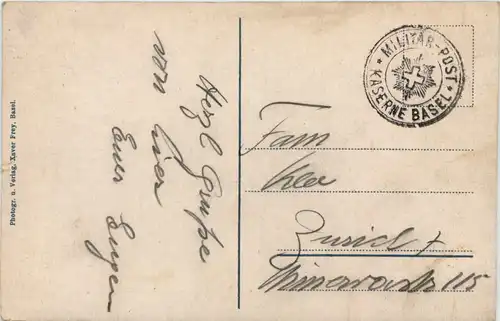 Photogr. u. Verlag, Xaver Frey, Basel.
Herzl Grüsse
von hier
Euer Eugen
MILITÄR-POST
KASERNE BASEL
Fam
Zürich
115